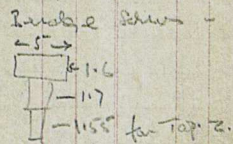 Bridge Screws -
← 5 →
1.6
1.7
1.55 for Tap 2.